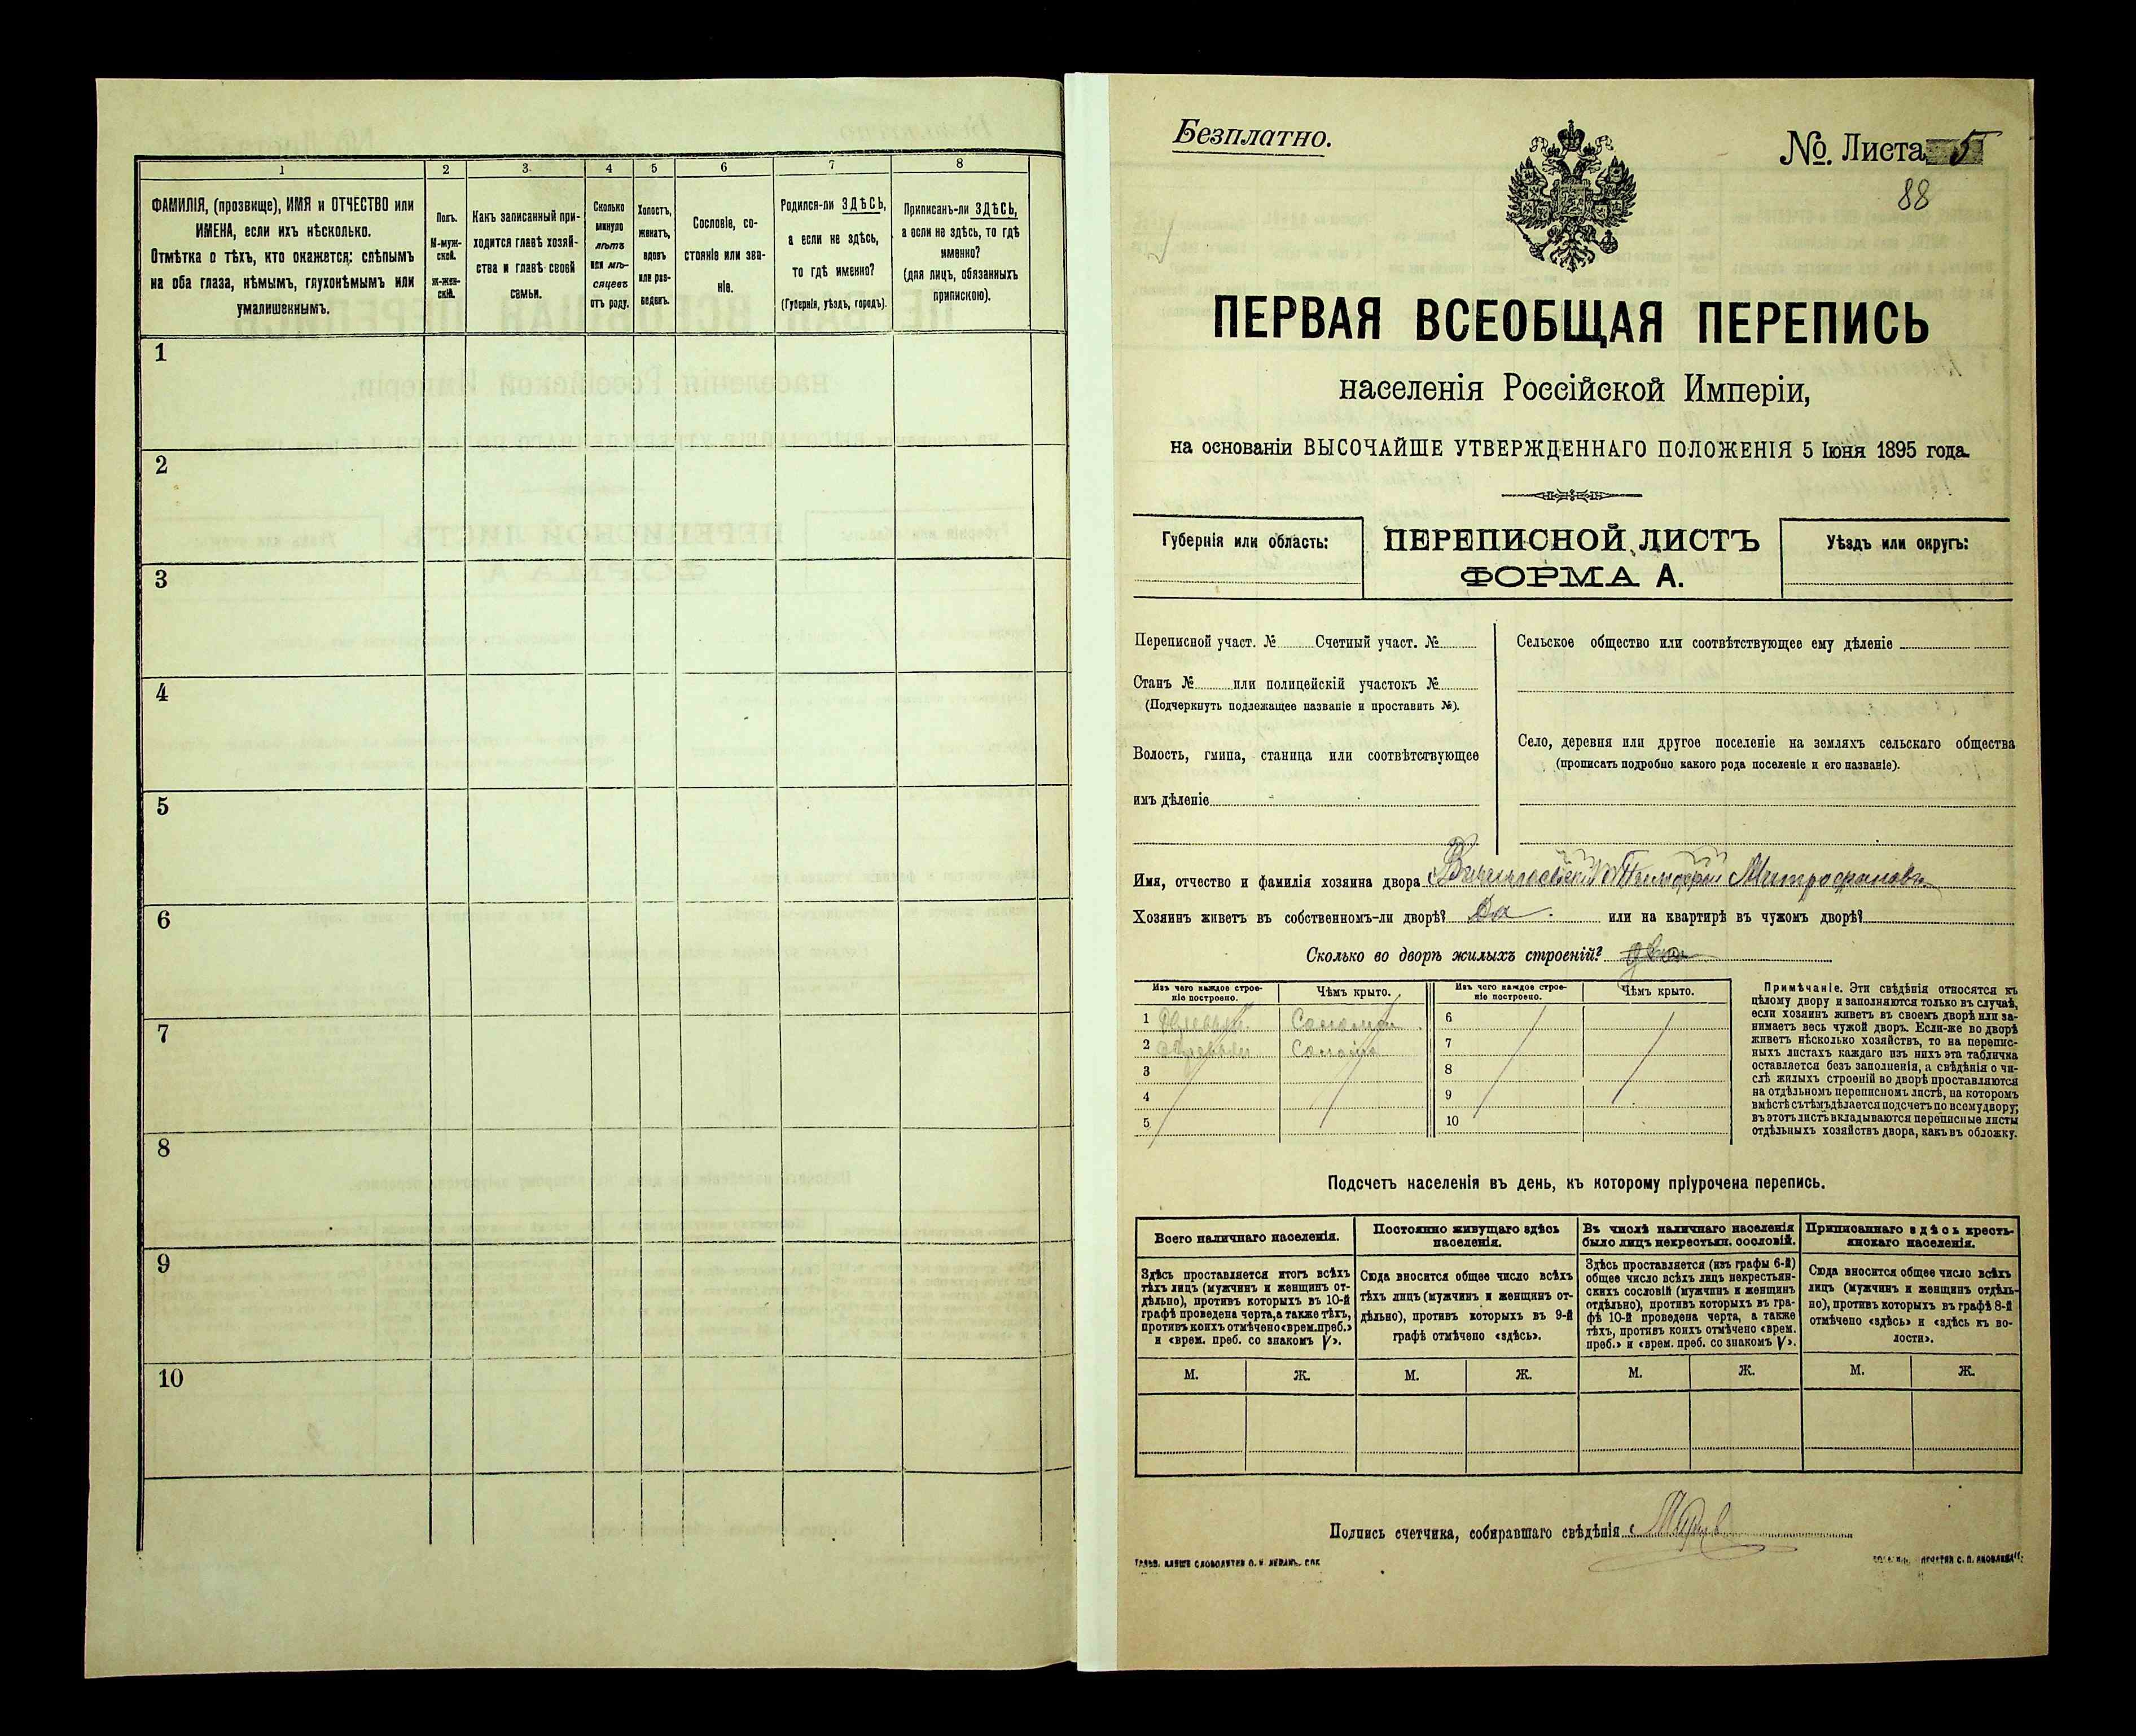 1
2
3
4
5
6
7
8
ФАМИЛІЯ, (прозвище), ИМЯ и ОТЧЕСТВО или
ИМЕНА, если ихъ нѣсколько.
Отмѣтка о тѣхъ, кто окажется: слѣпымъ
на оба глаза, нѣмымъ, глухонѣмымъ или
умалишеннымъ.
Полъ.
М-муж-
ской.
Ж-жен-
скій.
Какъ записанный при-
ходится главѣ хозяй-
ства и главѣ своей
семьи.
Сколько
минуло
лѣтъ
или мѣ-
сяцевъ
отъ роду.
Холостъ,
женатъ,
вдовъ
или раз-
веденъ.
Сословіе, со-
стояніе или зва-
ніе.
Родился-ли ЗДѢСЬ,
а если не здѣсь,
то гдѣ именно?
(Губернія, уѣздъ, городъ).
Приписанъ-ли ЗДѢСЬ,
а если не здѣсь, то гдѣ
именно?
(для лицъ, обязанныхъ
припискою).
1
2
3
4
5
6
7
8
9
10
Безплатно.
№. Листа 5
88
ПЕРВАЯ ВСЕОБЩАЯ ПЕРЕПИСЬ
населенія Россійской Имперіи,
на основаніи ВЫСОЧАЙШЕ УТВЕРЖДЕННАГО ПОЛОЖЕНІЯ 5 Іюня 1895 года.
Губернія или область:
ПЕРЕПИСНОЙ ЛИСТЪ
ФОРМА А.
Уѣздъ или округъ:
Переписной участ. № Счетный участ. №
Станъ № или полицейскій участокъ №
(Подчеркнуть подлежащее названіе и проставить №).
Волость, гмина, станица или соотвѣтствующее
имъ дѣленіе
Сельское общество или соотвѣтствующее ему дѣленіе
Село, деревня или другое поселеніе на земляхъ сельскаго общества
(прописать подробно какого рода поселеніе и его названіе).
Имя, отчество и фамилія хозяина двора Тимофей Митрофановъ
Хозяинъ живетъ въ собственномъ-ли дворѣ? Да. или на квартирѣ въ чужомъ дворѣ?
Сколько во дворѣ жилыхъ строеній? два
Изъ чего каждое строе-
ніе построено.
Чѣмъ крыто.
Изъ чего каждое строе-
ніе построено.
Чѣмъ крыто.
1 Соломой 6
2 7
3 8
4 9
5 10
Примѣчаніе. Эти свѣдѣнія относятся къ
цѣлому двору и заполняются только въ случаѣ,
если хозяинъ живетъ въ своемъ дворѣ или за-
нимаетъ весь чужой дворъ. Если-же во дворѣ
живетъ нѣсколько хозяйствъ, то на перепис-
ныхъ листахъ каждаго изъ нихъ эта табличка
оставляется безъ заполненія, а свѣдѣнія о чи-
слѣ жилыхъ строеній во дворѣ проставляются
на отдѣльномъ переписномъ листѣ, на которомъ
вмѣстѣ съ тѣмъ дѣлается подсчетъ по всему двору;
въ этотъ листъ вкладываются переписные листы
отдѣльныхъ хозяйствъ двора, какъ въ обложку.
Подсчетъ населенія въ день, къ которому пріурочена перепись.
Всего наличнаго населенія.
Постоянно живущаго здѣсь
населенія.
Въ числѣ наличнаго населенія
было лицъ некрестьян. сословій.
Приписаннаго здѣсь кресть-
янскаго населенія.
Здѣсь проставляется итогъ всѣхъ
тѣхъ лицъ (мужчинъ и женщинъ от-
дѣльно), противъ которыхъ въ 10-й
графѣ проведена черта, а также тѣхъ,
противъ коихъ отмѣчено «врем. преб.»
и «врем. преб. со знакомъ V».
Сюда вносится общее число всѣхъ
тѣхъ лицъ (мужчинъ и женщинъ от-
дѣльно), противъ которыхъ въ 9-й
графѣ отмѣчено «здѣсь».
Здѣсь проставляется (изъ графы 6-й)
общее число всѣхъ лицъ некрестьян-
скихъ сословій (мужчинъ и женщинъ
отдѣльно), противъ которыхъ въ гра-
фѣ 10-й проведена черта, а также
тѣхъ, противъ коихъ отмѣчено «врем.
преб.» и «врем. преб. со знакомъ V».
Сюда вносится общее число всѣхъ
лицъ (мужчинъ и женщинъ отдѣль-
но), противъ которыхъ въ графѣ 8-й
отмѣчено «здѣсь» и «здѣсь къ во-
лости».
М. Ж. М. Ж. М. Ж. М. Ж.
Подпись счетчика, собиравшаго свѣдѣнія